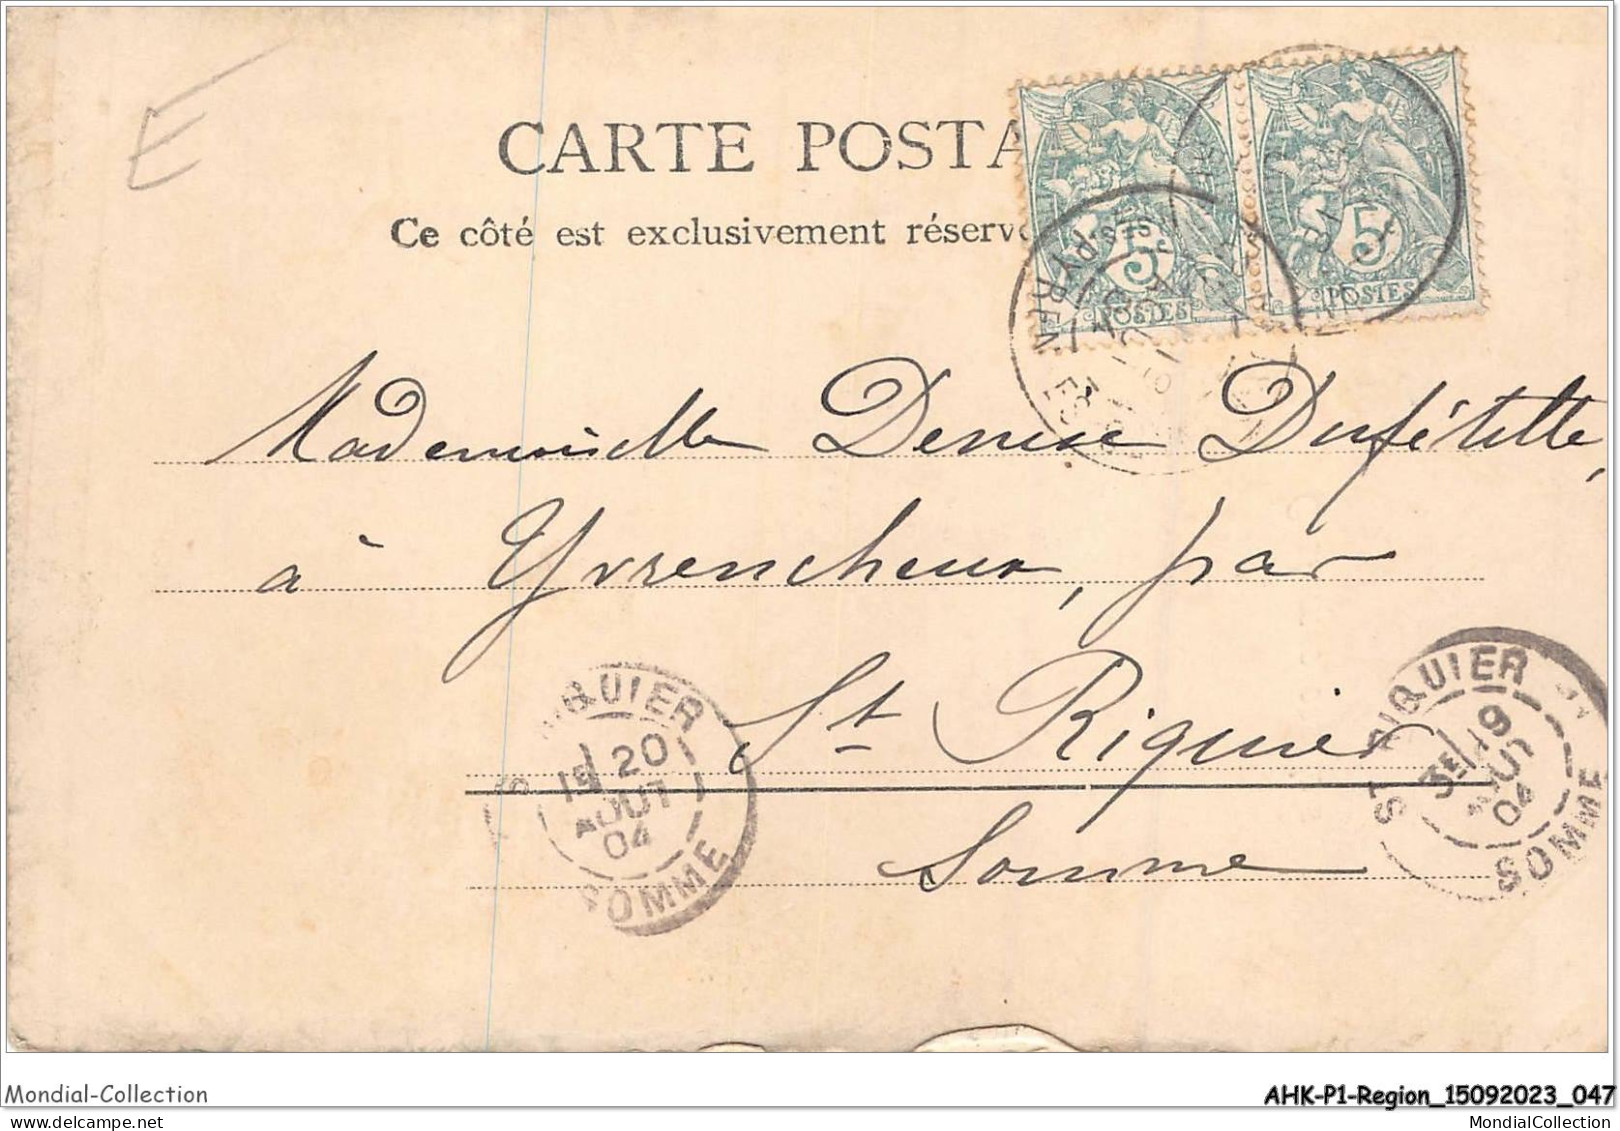 E
CARTE POSTA
Ce côté est exclusivement réservé
5c
POSTES
5c
POSTES
PYRENEES
Mademoiselle Denise Dufételle,
à Yvrencheux, par
St Riquier
Somme
RIQUIER
1E 20
AOUT
04
SOMME
ST RIQUIER
3E 19
AOUT
04
SOMME
Mondial-Collection
AHK-P1-Region_15092023_047
MondialCollection